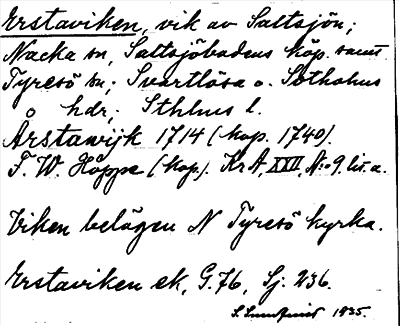 Erstaviken, vik av Saltsjön;
Nacka sn, Saltsjöbadens köp. samt
Tyresö sn; Svartlösa o. Sotholms
o hdr; Sthlms l.
Årstawijk 1714 (kop. 1740).
F. W. Höppe (kop). Kr A, XXII, No 9 lit. a.
Viken belägen N Tyresö kyrka.
Erstaviken ek, G. 76, Sj: 236.
S. Sundqvist 1935.